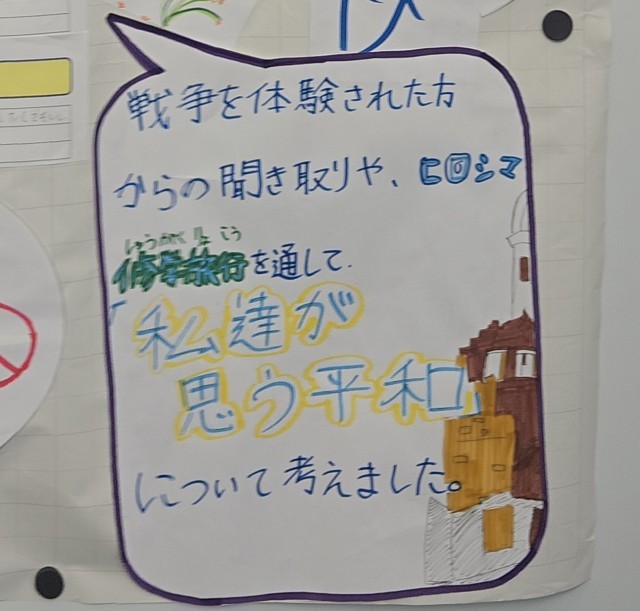 戦争を体験された方
からの聞き取りや、ヒロシマ
しゅうがくりょこう
修学旅行を通して、
私達が
思う平和
について考えました。